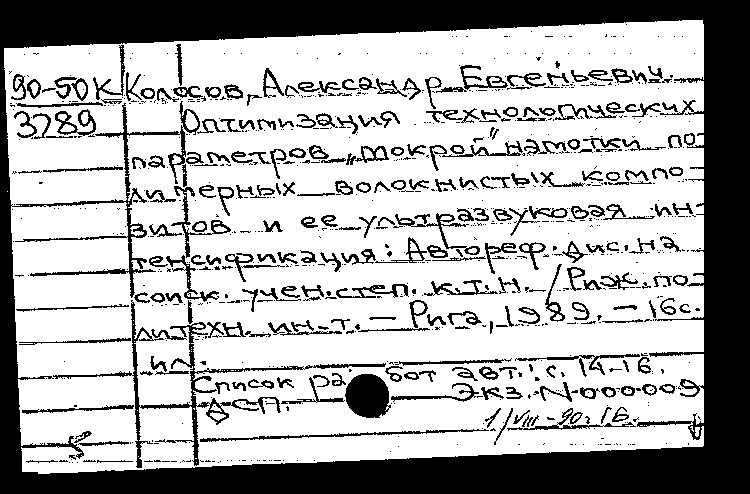 90-50К Колосов, Александр Евгеньевич.
3789 Оптимизация технологических
параметров „мокрой" намотки по-
лимерных волокнистых компо-
зитов и ее ультразвуковая ин-
тенсификация: Автореф. дис. на
соиск. учен. степ. к.т.н. / Риж. по-
литехн. ин-т. — Рига, 1989. — 16 с.
ил.
Список работ авт.: с. 14-16.
ДСП. Экз. N 000009
1/VIII-90г.